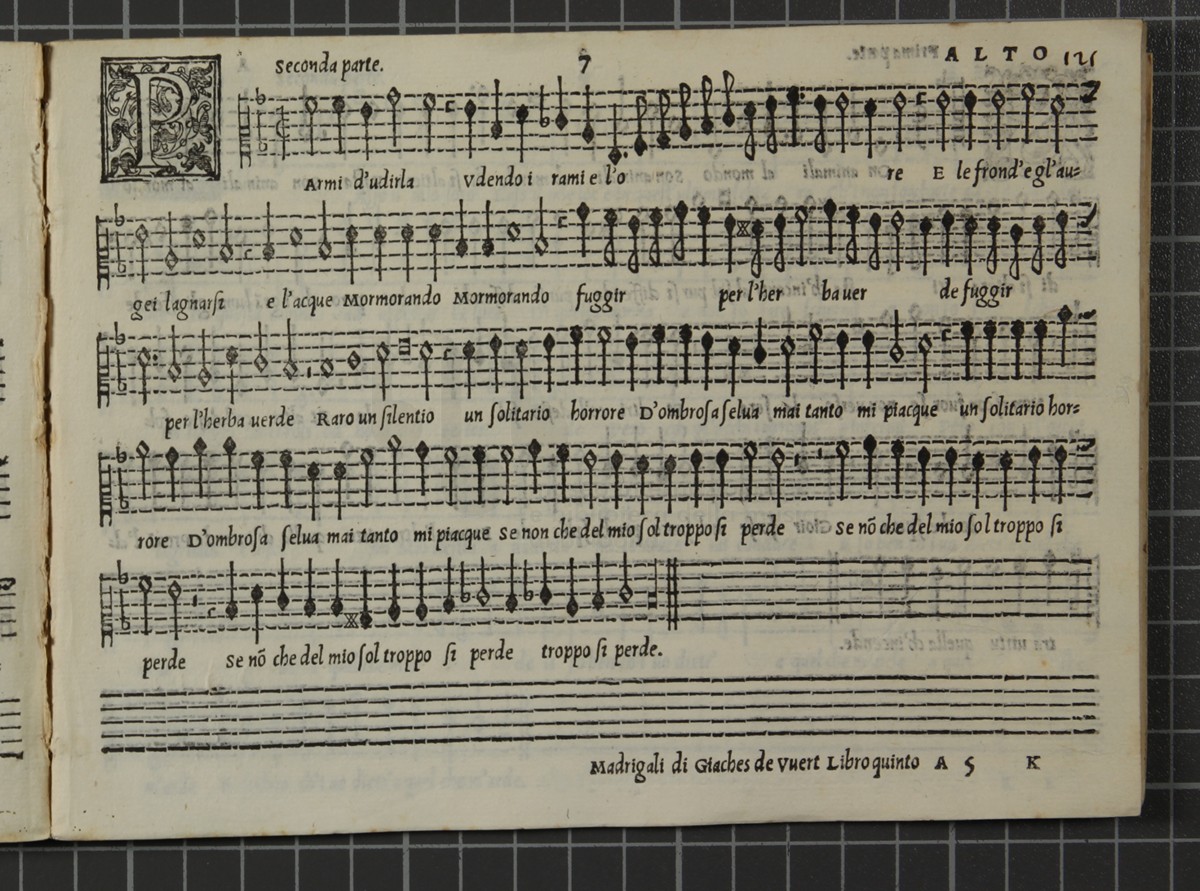 Seconda parte. 7 ALTO 121
PArmi d'udirla Vdendo i rami e l'o re E le frond'e gl'au=
gei lagnarsi e l'acque Mormorando Mormorando fuggir per l'her ba uer de fuggir
per l'herba uerde Raro un silentio un solitario horrore D'ombrosa selua mai tanto mi piacque un solitario hor=
rore D'ombrosa selua mai tanto mi piacque Se non che del mio sol troppo si perde Se nõ che del mio sol troppo si
perde Se nõ che del mio sol troppo si perde troppo si perde.
Madrigali di Giaches de Vuert Libro quinto A 5 K